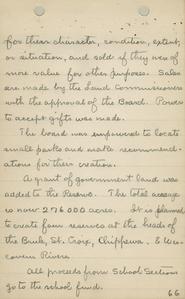 for their character, condition, extent,
or situation, and sold if they were of
more value for other purposes. Sales
are made by the Land Commissioners
with the approval of the Board. Power
to accept gifts was made.
The board was empowered to locate
small parks and make recommend-
ations for their creation.
A grant of government land was
added to the Reserve. The total acreage
is now 276000 acres. It is planned
to create farm reserves at the heads of
the Brule, St. Croix, Chippewa, & Wis-
consin Rivers.
All proceeds from School Sections
go to the school fund.
66